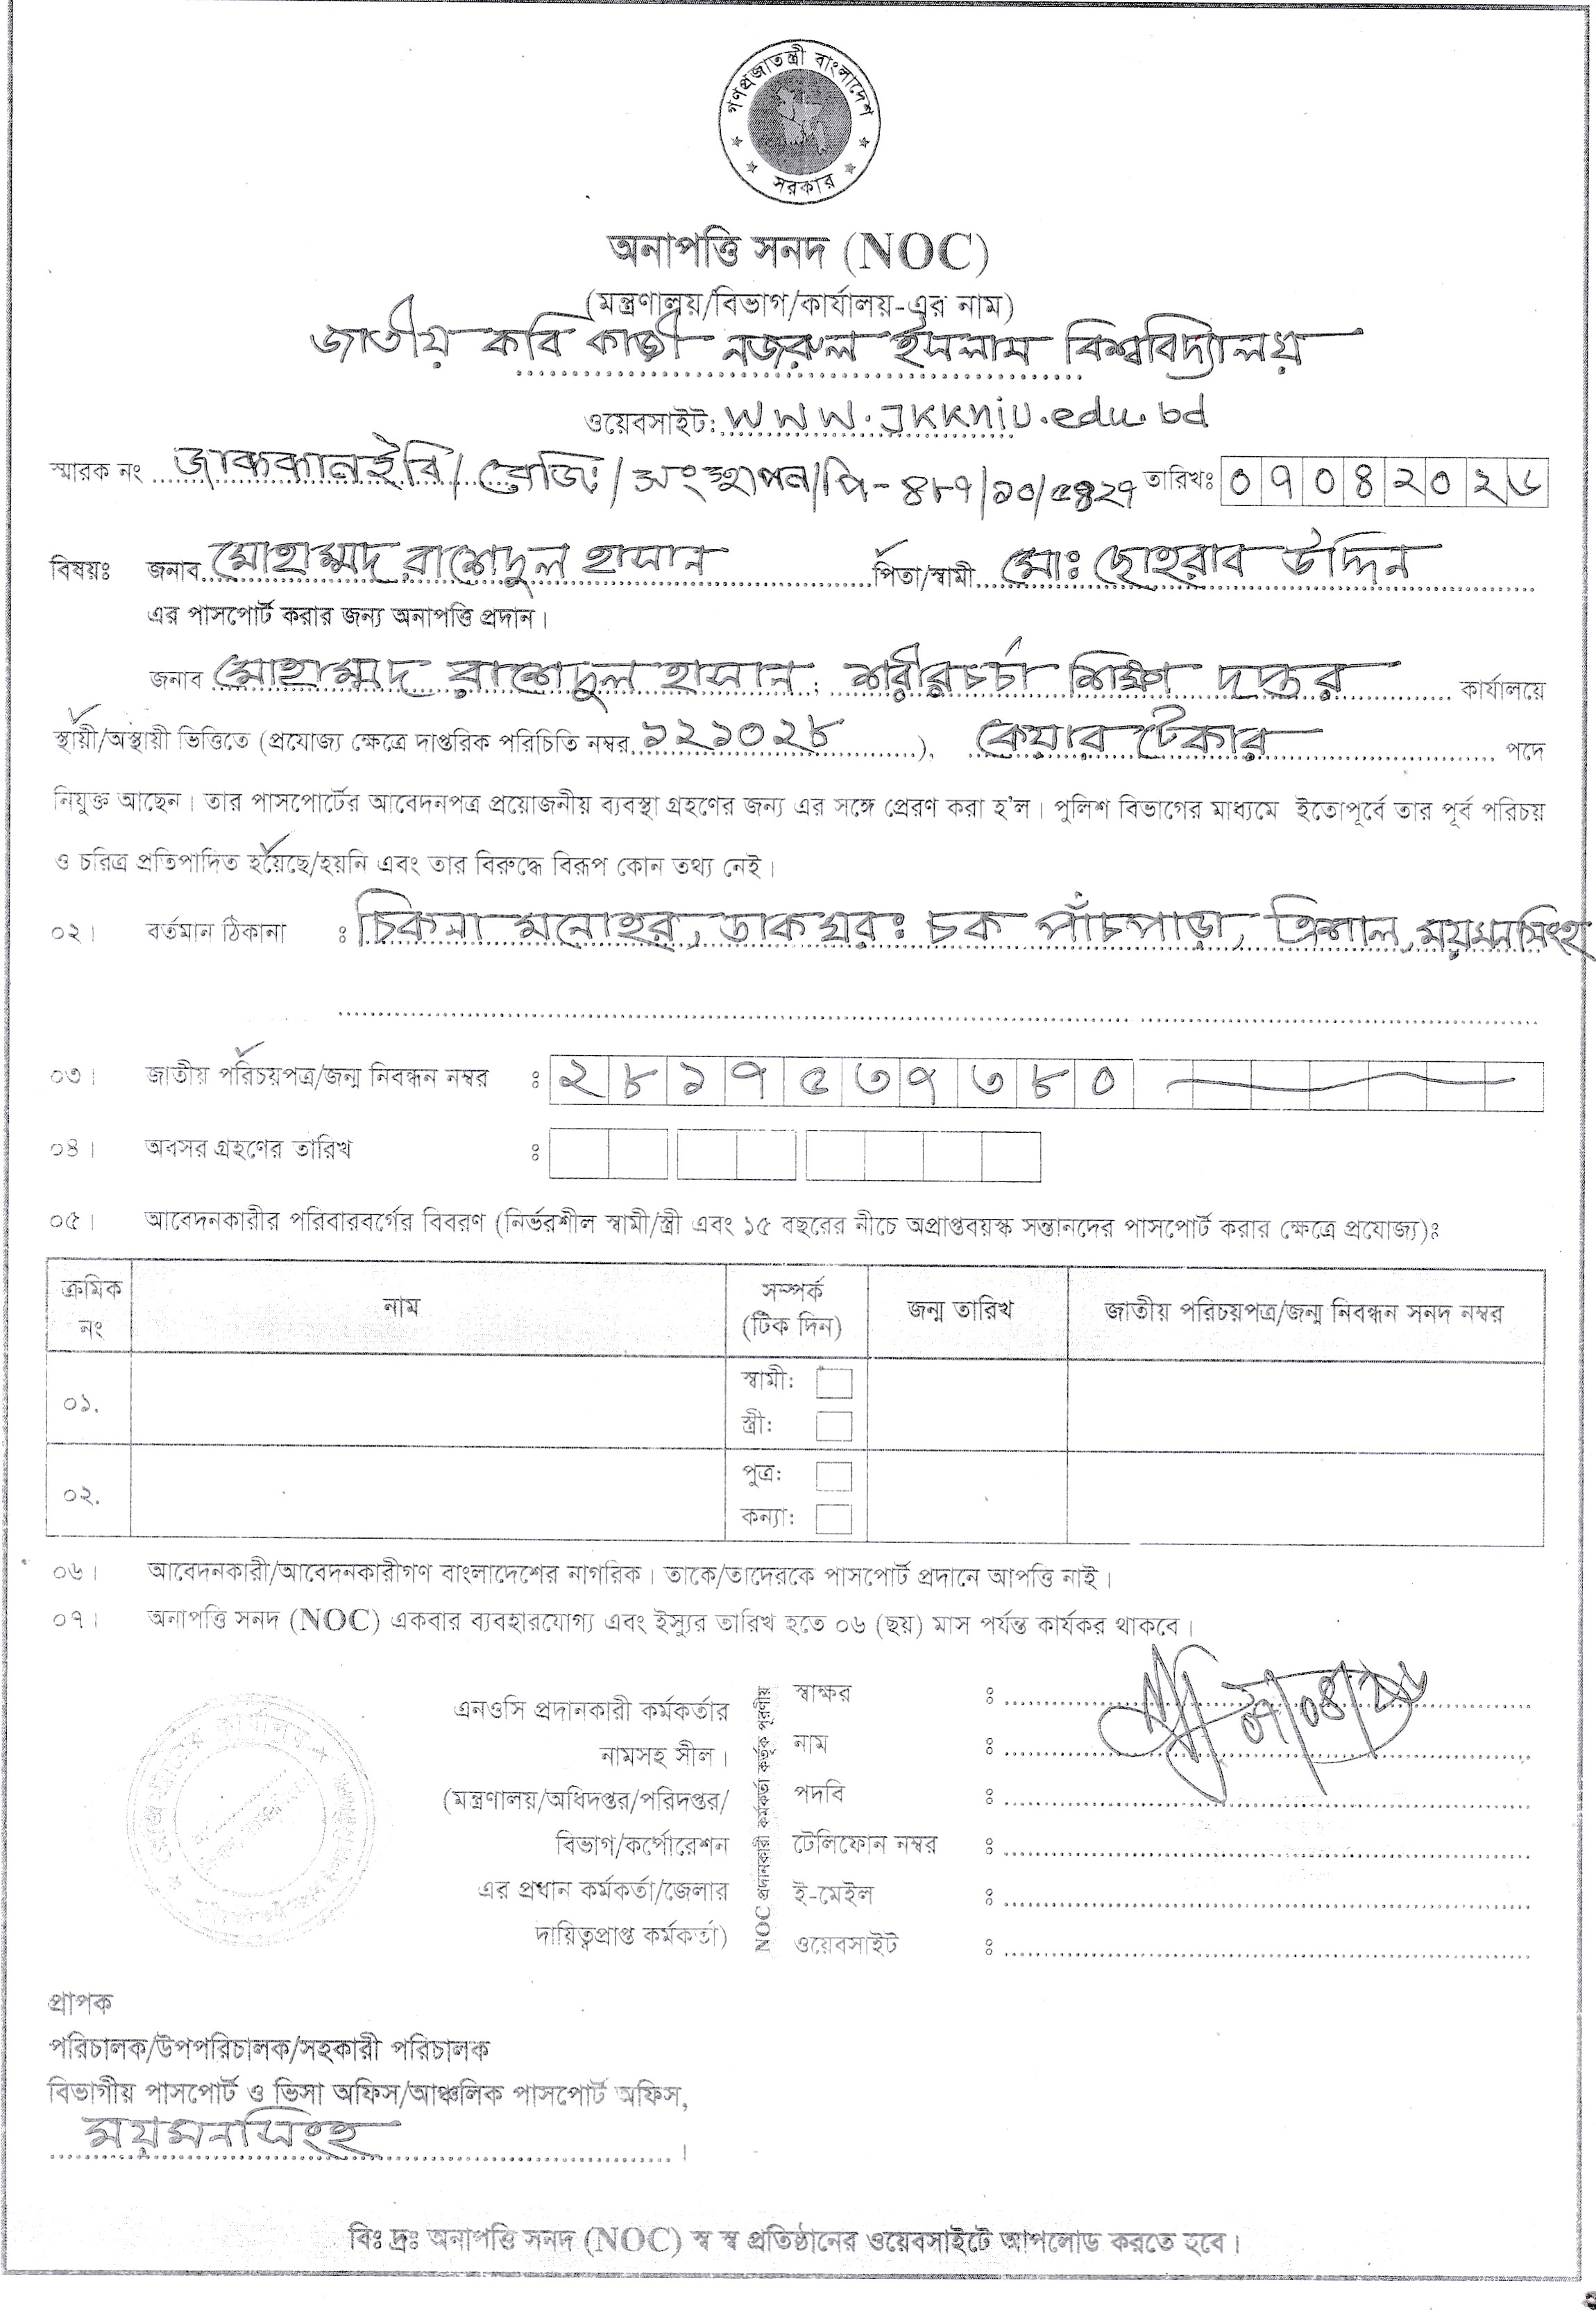 গণপ্রজাতন্ত্রী বাংলাদেশ
সরকার
অনাপত্তি সনদ (NOC)
(মন্ত্রণালয়/বিভাগ/কার্যালয়-এর নাম)
জাতীয় কবি কাজী নজরুল ইসলাম বিশ্ববিদ্যালয়
ওয়েবসাইট: www.jkkniu.edu.bd
স্মারক নং জাককানইবি/রেজিঃ/সংস্থাপন/পি-৪৮৭/১০/৫৪২৭ তারিখঃ ০৭০৪২০২৬
বিষয়ঃ জনাব মোহাম্মদ রাশেদুল হাসান পিতা/স্বামী মোঃ ছোহরাব উদ্দিন
এর পাসপোর্ট করার জন্য অনাপত্তি প্রদান।
জনাব মোহাম্মদ রাশেদুল হাসান, শরীরচর্চা শিক্ষা দপ্তর কার্যালয়ে
স্থায়ী/অস্থায়ী ভিত্তিতে (প্রযোজ্য ক্ষেত্রে দাপ্তরিক পরিচিতি নম্বর ১২১০২৮), কেয়ার টেকার পদে
নিযুক্ত আছেন। তার পাসপোর্টের আবেদনপত্র প্রয়োজনীয় ব্যবস্থা গ্রহণের জন্য এর সঙ্গে প্রেরণ করা হ'ল। পুলিশ বিভাগের মাধ্যমে ইতোপূর্বে তার পূর্ব পরিচয়
ও চরিত্র প্রতিপাদিত হয়েছে/হয়নি এবং তার বিরুদ্ধে বিরূপ কোন তথ্য নেই।
০২। বর্তমান ঠিকানা : চিকনা মনোহর, ডাকঘরঃ চক পাঁচপাড়া, ত্রিশাল, ময়মনসিংহ
০৩। জাতীয় পরিচয়পত্র/জন্ম নিবন্ধন নম্বর ঃ ২৮১৭৫৩৭৩৮০
০৪। অবসর গ্রহণের তারিখ ঃ
০৫। আবেদনকারীর পরিবারবর্গের বিবরণ (নির্ভরশীল স্বামী/স্ত্রী এবং ১৫ বছরের নীচে অপ্রাপ্তবয়স্ক সন্তানদের পাসপোর্ট করার ক্ষেত্রে প্রযোজ্য)ঃ
ক্রমিক নং নাম সম্পর্ক (টিক দিন) জন্ম তারিখ জাতীয় পরিচয়পত্র/জন্ম নিবন্ধন সনদ নম্বর
০১. স্বামী:
স্ত্রী:
০২. পুত্র:
কন্যা:
০৬। আবেদনকারী/আবেদনকারীগণ বাংলাদেশের নাগরিক। তাকে/তাদেরকে পাসপোর্ট প্রদানে আপত্তি নাই।
০৭। অনাপত্তি সনদ (NOC) একবার ব্যবহারযোগ্য এবং ইস্যুর তারিখ হতে ০৬ (ছয়) মাস পর্যন্ত কার্যকর থাকবে।
এনওসি প্রদানকারী কর্মকর্তার
নামসহ সীল।
(মন্ত্রণালয়/অধিদপ্তর/পরিদপ্তর/
বিভাগ/কর্পোরেশন
এর প্রধান কর্মকর্তা/জেলার
দায়িত্বপ্রাপ্ত কর্মকর্তা)
NOC প্রদানকারী কর্মকর্তা কর্তৃক পূরণীয়
স্বাক্ষর ঃ
০৭/০৪/২৬
নাম ঃ
পদবি ঃ
টেলিফোন নম্বর ঃ
ই-মেইল ঃ
ওয়েবসাইট ঃ
প্রাপক
পরিচালক/উপপরিচালক/সহকারী পরিচালক
বিভাগীয় পাসপোর্ট ও ভিসা অফিস/আঞ্চলিক পাসপোর্ট অফিস,
ময়মনসিংহ।
বিঃ দ্রঃ অনাপত্তি সনদ (NOC) স্ব স্ব প্রতিষ্ঠানের ওয়েবসাইটে আপলোড করতে হবে।